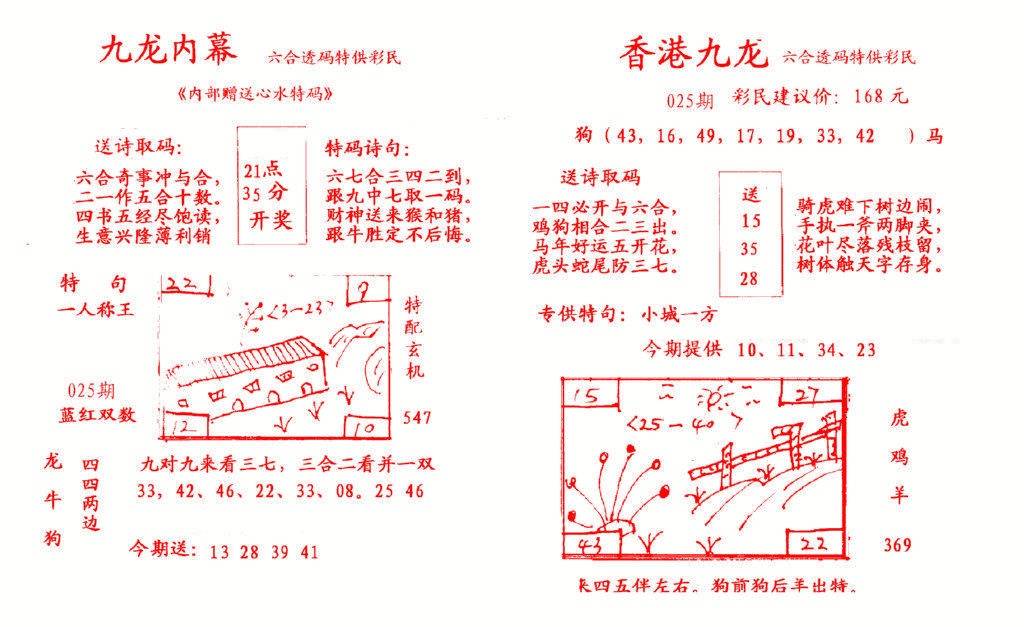 九龙内幕 六合透码特供彩民
《内部赠送心水特码》
送诗取码：
六合奇事冲与合，
二一作五合十数。
四书五经尽饱读，
生意兴隆薄利销
21点
35分
开奖
特码诗句：
六七合三四二到，
跟九中七取一码。
财神送来猴和猪，
跟牛胜定不后悔。
特 句
一人称王
025期
蓝红双数
22
9
〈3—23〉
12
10
特配玄机
547
龙牛狗
四四两边
九对九来看三七，三合二看并一双
33，42、46、22、33、08。25 46
今期送：13 28 39 41
香港九龙 六合透码特供彩民
025期 彩民建议价：168元
狗（43，16，49，17，19，33，42 ）马
送诗取码
一四必开与六合，
鸡狗相合二三出。
马年好运五开花，
虎头蛇尾防三七。
送
15
35
28
骑虎难下树边闹，
手执一斧两脚夹，
花叶尽落残枝留，
树体触天字存身。
专供特句：小城一方
今期提供 10、11、34、23
15
27
〈25—40〉
43
22
虎
鸡
羊
369
四五伴左右。狗前狗后羊出特。